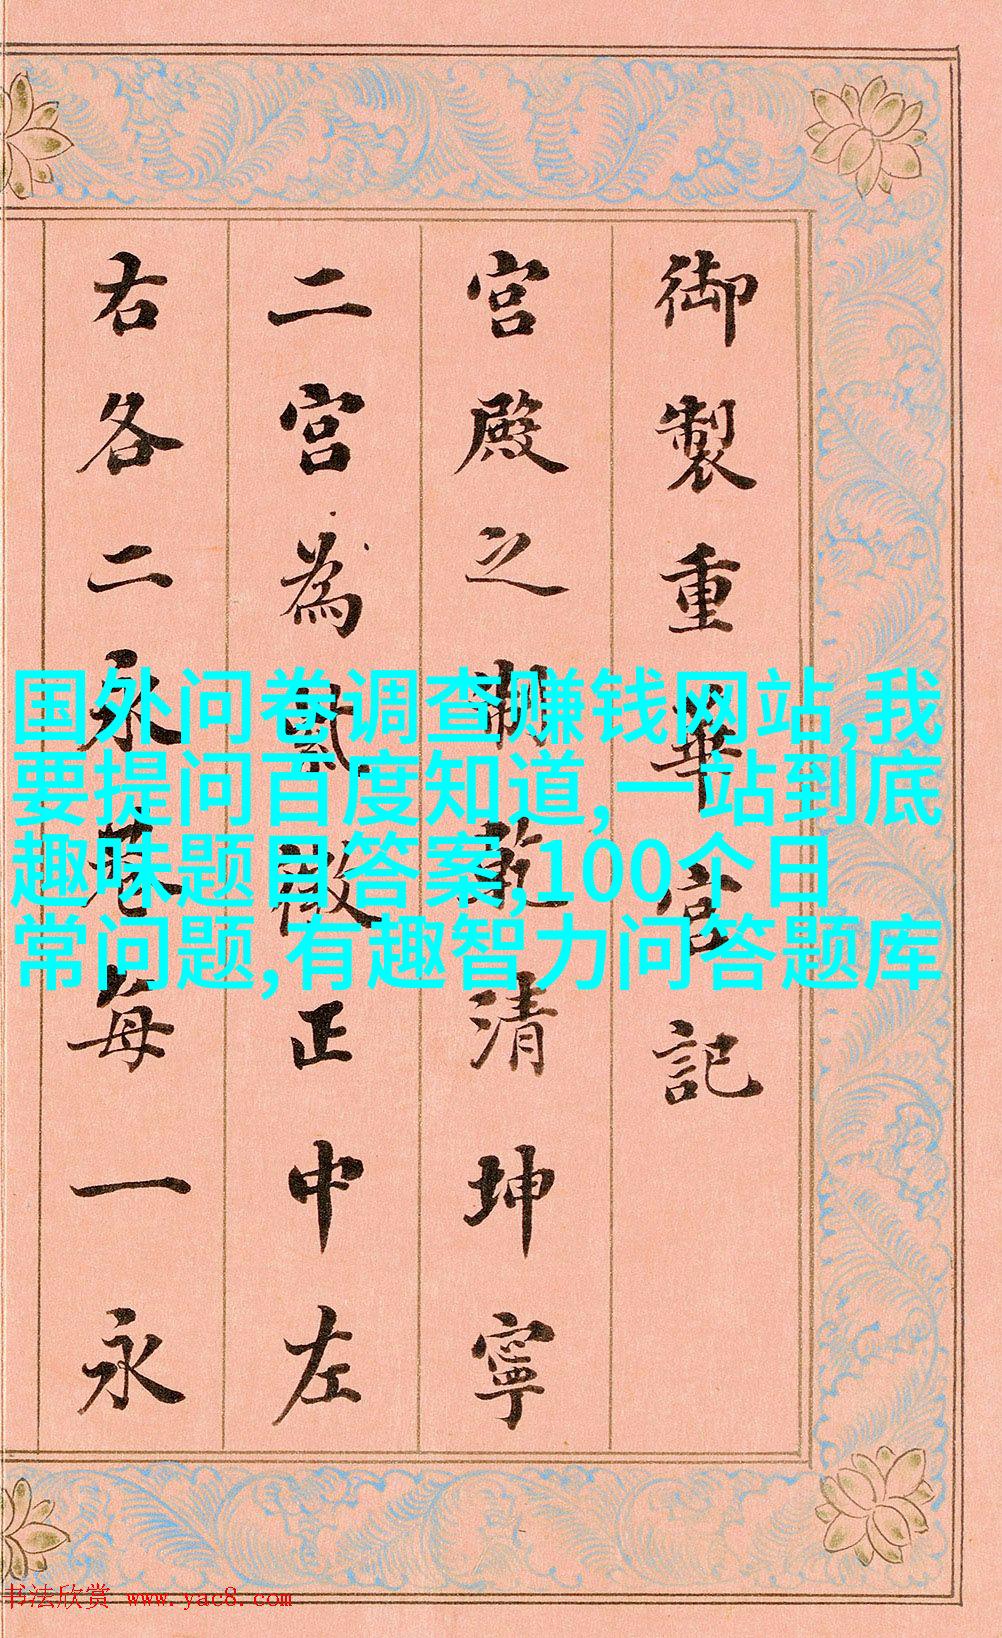 御製重華宮記
宮殿之制乾清坤寧
二宮為紫微正中左
右各二永巷每一永
国外问卷调查赚钱网站,我
要提问百度知道,一站到底
趣味题目答案,100个日
常问题,有趣智力问答题库
书法欣赏 www.yac8.com